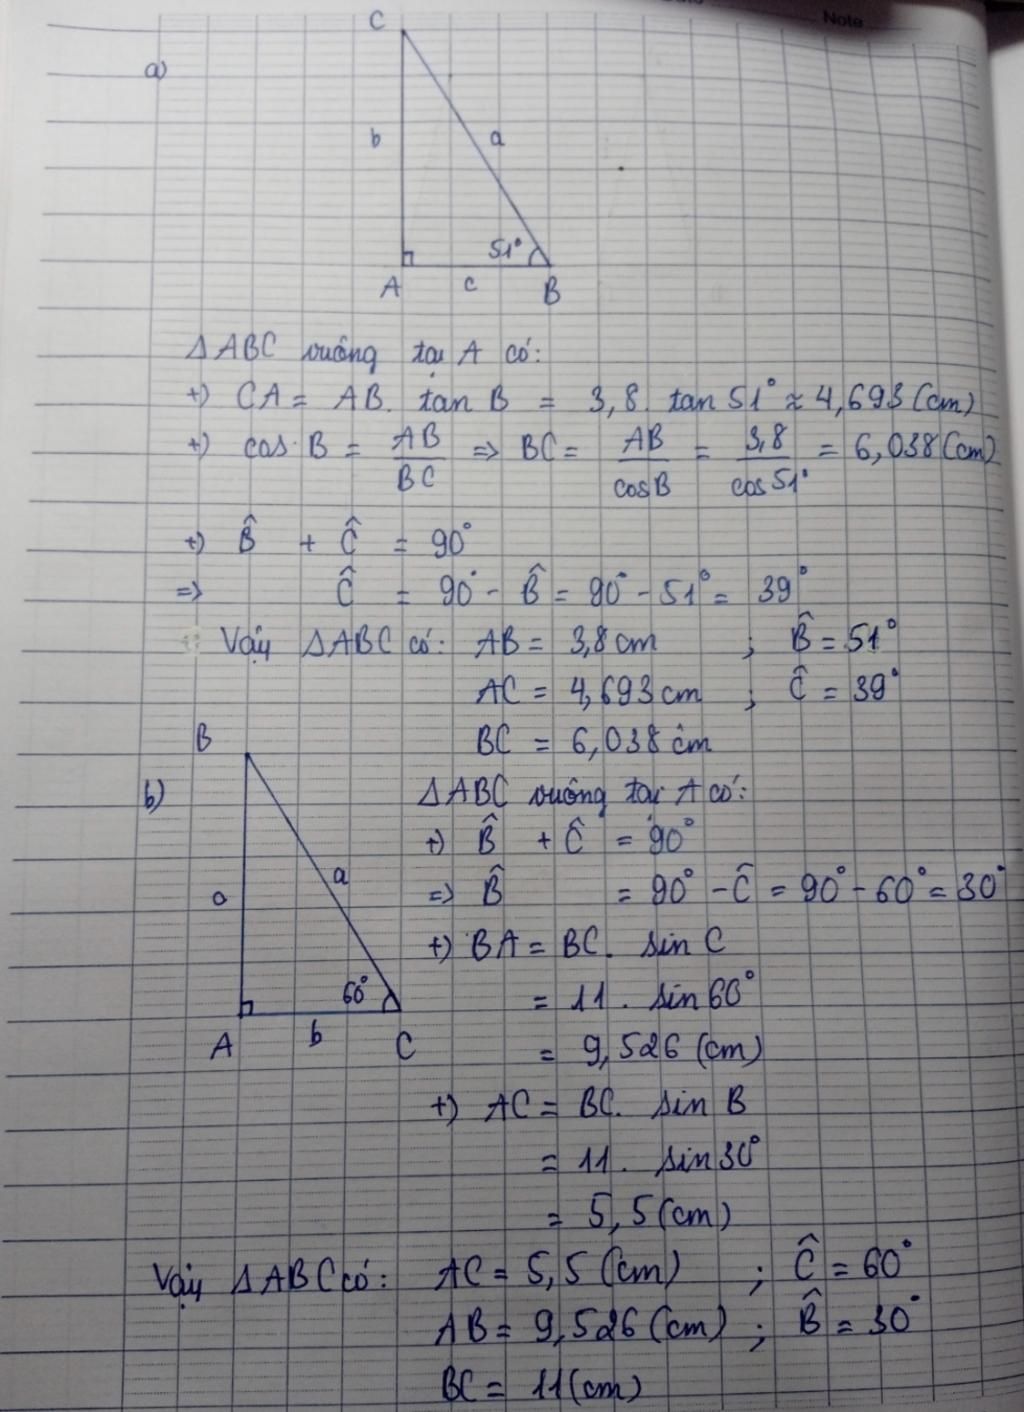 Note
C
a)
b
a
51°
A
c
B
ΔABC vuông tại A có:
+) CA = AB. tan B = 3,8. tan 51° ≈ 4,693 (cm)
+) cos B = AB/BC => BC = AB/cosB = 3,8/cos 51° = 6,038 (cm)
+) B̂ + Ĉ = 90°
=> Ĉ = 90° - B̂ = 90° - 51° = 39°
Vậy ΔABC có: AB = 3,8 cm ; B̂ = 51°
AC = 4,693 cm ; Ĉ = 39°
BC = 6,038 cm
B
b)
a
60°
A
b
C
ΔABC vuông tại A có:
+) B̂ + Ĉ = 90°
=> B̂ = 90° - Ĉ = 90° - 60° = 30°
+) BA = BC. sin C
= 11. sin 60°
= 9,526 (cm)
+) AC = BC. sin B
= 11. sin 30°
= 5,5 (cm)
Vậy ΔABC có: AC = 5,5 (cm) ; Ĉ = 60°
AB = 9,526 (cm) ; B̂ = 30°
BC = 11 (cm)